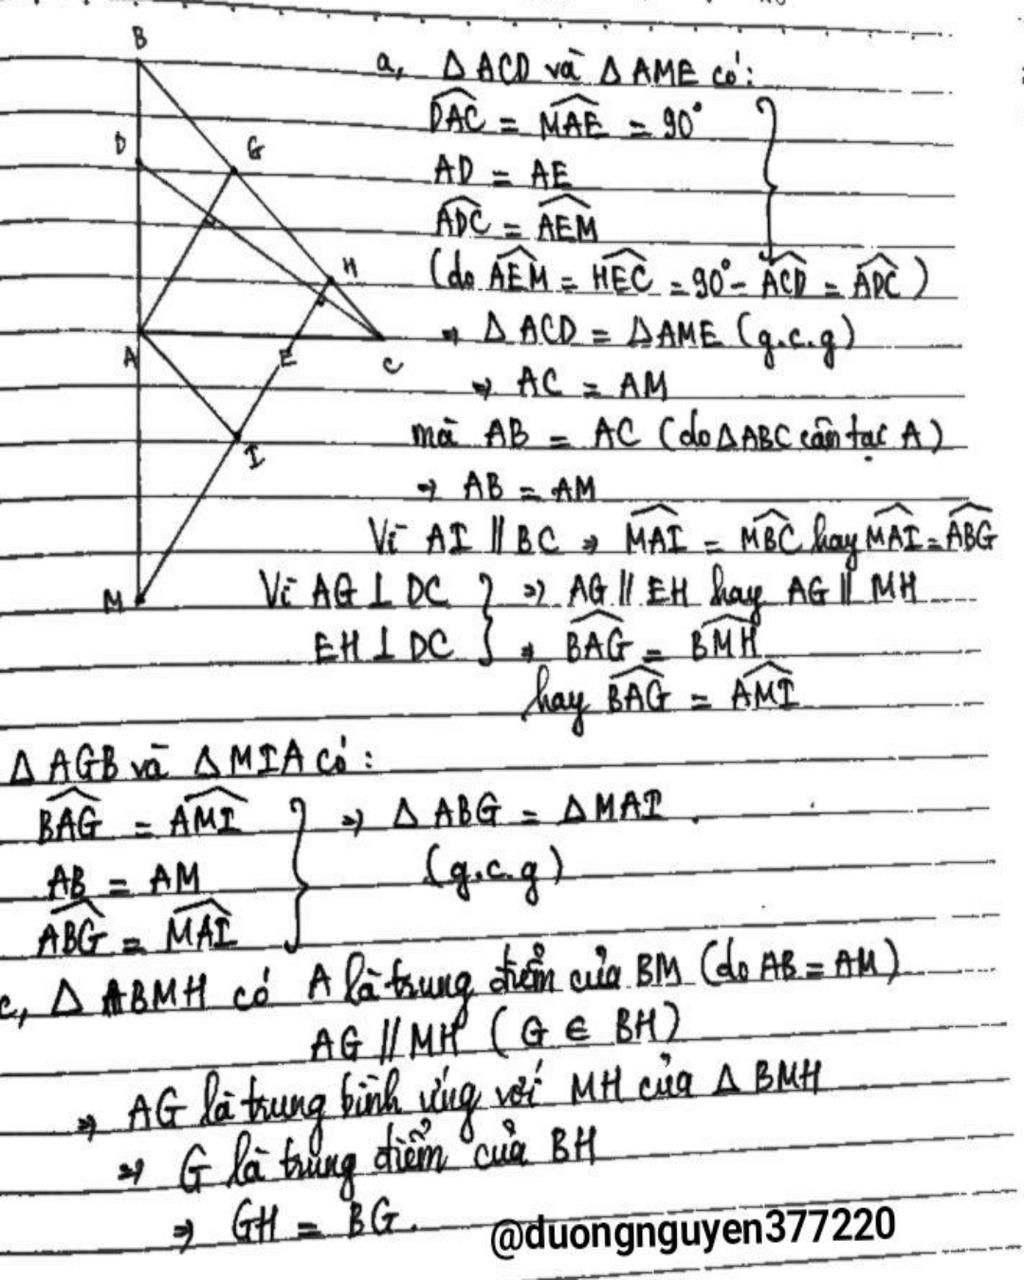 B
D
G
H
A
E
C
I
M
a, Δ ACD và Δ AME có:
\widehat{DAC} = \widehat{MAE} = 90°
AD = AE
\widehat{ADC} = \widehat{AEM}
(do \widehat{AEM} = \widehat{HEC} = 90° - \widehat{ACD} = \widehat{ADC})
⇒ Δ ACD = Δ AME (g.c.g)
⇒ AC = AM
mà AB = AC (do Δ ABC cân tại A)
⇒ AB = AM
Vì AI // BC ⇒ \widehat{MAI} = \widehat{MBC} hay \widehat{MAI} = \widehat{ABG}
Vì AG ⊥ DC } ⇒ AG // EH hay AG // MH
EH ⊥ DC } ⇒ \widehat{BAG} = \widehat{BMH}
hay \widehat{BAG} = \widehat{AMI}
Δ AGB và Δ MIA có:
\widehat{BAG} = \widehat{AMI} } ⇒ Δ ABG = Δ MAI
AB = AM (g.c.g)
\widehat{ABG} = \widehat{MAI}
c, Δ BMH có A là trung điểm của BM (do AB = AM)
AG // MH (G ∈ BH)
⇒ AG là trung bình ứng với MH của Δ BMH
⇒ G là trung điểm của BH
⇒ GH = BG.
@duongnguyen377220